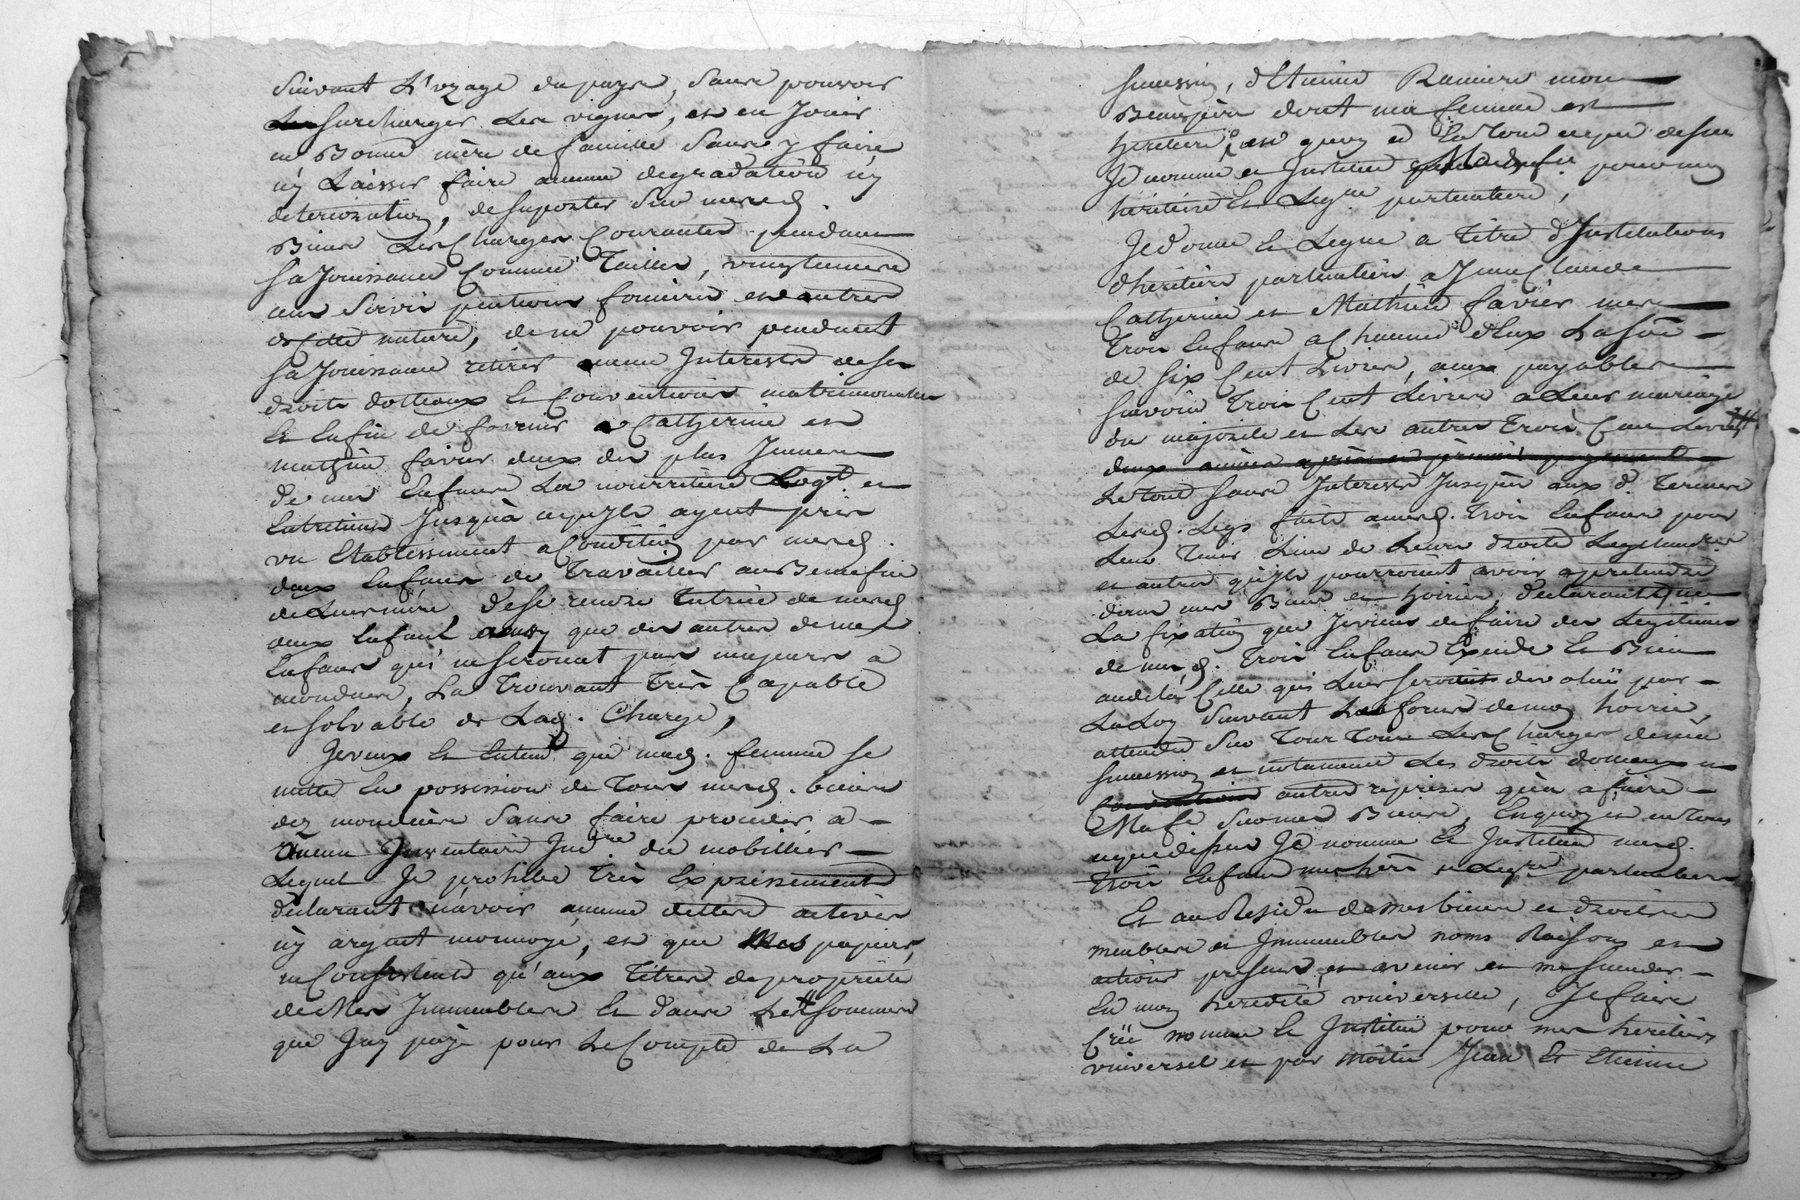 Suivant L'uzage du pays, Sans pouvoir
surcharger Les vignes, et en Jouir
en Bonne mère de famille Sans y faire
n'y Laisser faire aucune degradation n'y
deterioration, de suporter Sur mesd.
Biens Les Charges Courantes pendant
Sa Jouissance Comme Tailles, vingtiemes
cens Servis pentions foncieres et autres
de Cette nature, de ne pouvoir pendant
Sa Jouissance retirer aucune Interests de ses
droits dotteaux et Conventions matrimonialles
Et Enfin de fournir a Catherine et
mathieu favier deux des plus Jeunes
de mes Enfans La nourriture Logt. et
Entretiens Jusqu'à ce qu'yls ayent pris
un Etablissement a Condition par mesd.
deux Enfans de Travailler au Benefice
de Leur mère, de se rendre Tutrice de mesd.
deux Enfans ainsy que des autres de mes
Enfans qui ne seront pas majeurs a
mon deces, La Trouvant Très Capable
et solvable de Lad. Charge,
Je veux Et Entend que mad. femme se
mette En possession de Tous mesd. biens
dez mon deces Sans faire proceder a
aucun Inventaire Judre. du mobillier
Lequel Je prohibe Très Expressement
déclarant n'avoir aucune dettes actives
n'y argent monnoyé, et que Mes papiers,
ne Consistent qu'aux Titres de proprieté
de Mes Immeubles Et dans Les sommes
que J'ay payé pour Le Compte de La
succession, d'Etienne Raniere mon
Beaupère dont ma femme est
heritiere, en quoy et
Je nomme et Institue Mad. fe. pour mon
héritiere Et Legre particuliere,
Je donne Et Legue a Titre d'Institution
d'héritiers particuliers, a Jeanne Claude
Catherine et Mathieu favier mes
Trois Enfans a Chacune d'Eux La some
de six Cent Livres, aux payables
sçavoir Trois Cent Livres a Leur mariage
ou majorité et Les autres Trois Cent Livres
deux années après Ce premier payement
Le tout Sans Interests Jusqu'aux d. Termes
Lesd. Legs faits a mesd. Trois Enfans pour
Leur Tenir Lieu de Leurs droits Legitimaires
et autres qu'yls pourroient avoir a pretendre
dans mes Biens et hoirie, déclarant que
La fixation que Je viens de faire des Legitimes
de mesd. Trois Enfans Excede Et Bien
audela Celle qui Leur seroit devolue par
La Loy Suivant Les forces de mon hoirie,
attendu Sur Tout Tous Les Charges de ma
succession et notamment Les droits dotteaux
Conventions autres reprises qu'a a faire
Ma fe. Sur mes Biens, En quoy et en tous
ce que dessus Je nomme Et Institue mesd.
Trois Enfans mes hers. et Legres. particuliers
Et au Residu de Mes biens et droits
meubles et Immeubles noms Raisons et
actions presens et avenir et me succeder
En mon heredité universelle, Je faire
Crée nomme Et Institue pour mes heritiers
universel et par moitie Jean Et Etienne